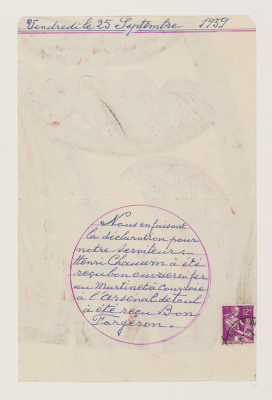 Vendredi le 25 Septembre 1959
Nous en faisont
la déclaration pour
notre serviteur
Henri Chauvin à été
reçu bon ouvrier en fer
au Martinet à
à l'arsenal de toul
à été reçu Bon
Forgeron.
12F